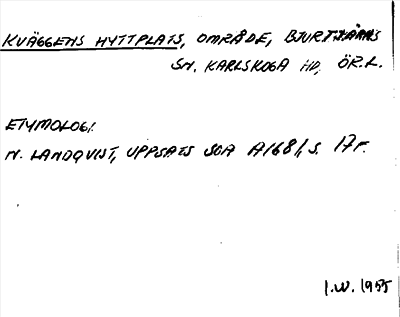 KVÄGGENS HYTTPLATS, OMRÅDE, BJURTJÄRNS
SN. KARLSKOGA HD, ÖR.L.
ETYMOLOGI.
N. LANDQVIST, UPPSATS SOA A168/, S. 17 F.
I.W. 1955